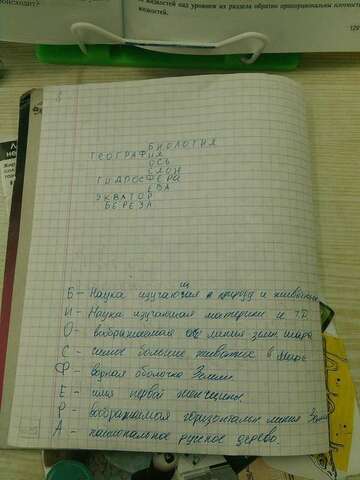 жидкостей над уровнем их раздела обратно пропорциональны плотностям
жидкостей.
129
БИОЛОГИЯ
ГЕОГРАФИЯ
ОСЬ
СЛОН
ГИДРОСФЕРА
ЕВА
ЭКВАТОР
БЕРЕЗА
Б - Наука изучающия природу и животных
И - Наука изучающая материки и т.д
О - воображаемая линия земн. шара
С - самое большое животное в Мире
Ф - водная оболочка Земли
Е - имя первой женщины.
Р - воображаемая горизонтальн. линия Земли
А - национальное русское дерево.